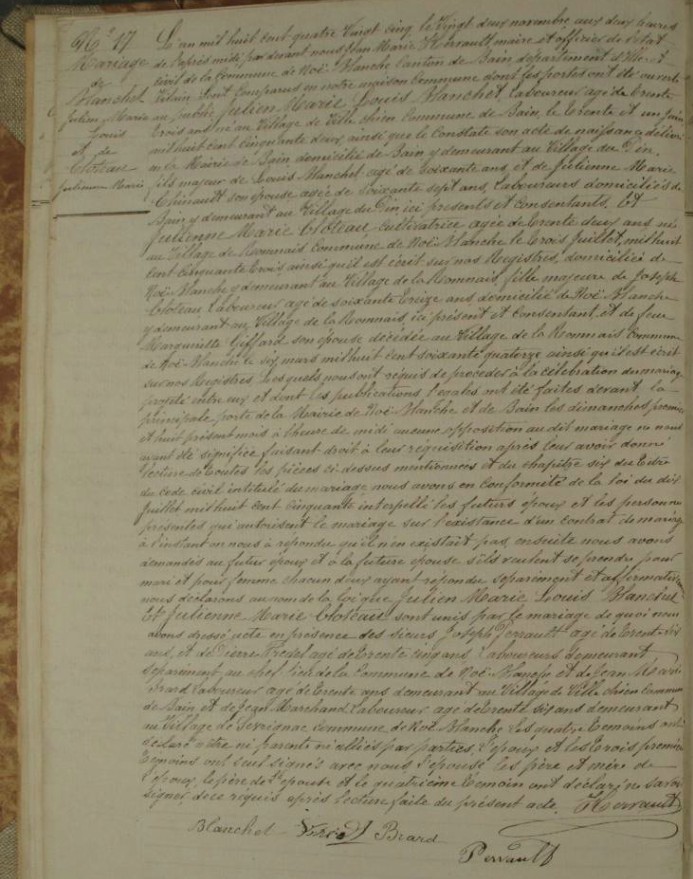 No. 17
Mariage
de
Blanchet
Julien Marie
Louis
et de
Cloteau
Julienne Marie
L'an mil huit cent quatre vingt cinq le vingt deux novembre aux deux heures
de l'après midi par devant nous Jean Marie Herrault, maire et officier de l'état
civil de la commune de Noë-Blanche canton de Bain département d'Ille-et-
Vilaine sont comparus en notre maison commune dont les portes ont été ouvertes
au public Julien Marie Louis Blanchet, laboureur agé de trente
trois ans né au village de Ville chien commune de Bain, le trente et un
mil huit cent cinquante deux ainsi que le constate son acte de naissance délivré
à la Mairie de Bain domicilié de Bain y demeurant au village du Pin
fils majeur de Louis Blanchet agé de soixante ans, et de Julienne Marie
son épouse agée de soixante sept ans, laboureurs domiciliés de
Bain y demeurant au village du Pin ici présents et consentants. Et
Julienne Marie Cloteau cultivatrice agée de trente deux ans née
au village de Reomnais commune de Noë-Blanche le trois juillet, mil huit
cent cinquante trois ainsi qu'il est écrit sur nos Registres, domiciliée de
Noë-Blanche y demeurant au village de la Reomnais, fille majeure de Joseph
Cloteau laboureur agé de soixante treize ans domicilié de Noë-Blanche
y demeurant au village de la Reomnais, ici présent et consentant, et de feue
Marguerite Giffard son épouse décédée au village de la Reomnais commune
de Noë-Blanche le six mars mil huit cent soixante quatorze ainsi qu'il est écrit
sur nos Registres. Lesquels nous ont requis de procéder à la célébration du mariage
projeté entre eux et dont les publications légales ont été faites devant la
principale porte de la Mairie de Noë-Blanche et de Bain les dimanches premier
et huit présent mois à l'heure de midi aucune opposition au dit mariage ne nous
ayant été signifiée, faisant droit à leur réquisition après leur avoir donné
lecture de toutes les pièces ci dessus mentionnées et du chapitre six du titre
du code civil intitulé du mariage nous avons en conformité de la loi du dix
juillet mil huit cent cinquante interpellé les futurs époux et les personnes
présentes qui autorisent le mariage sur l'existance d'un contrat de mariage
à l'instant on nous à répondu qu'il n'en existait pas, ensuite nous avons
demandés au futur époux et à la future épouse s'ils veulent se prendre pour
mari et pour femme chacun d'eux ayant répondu séparément et affirmativement
nous déclarons au nom de la loi que Julien Marie Louis Blanchet
Et Julienne Marie Cloteau sont unis par le mariage de quoi nous
avons dressé acte en présence des sieurs Joseph Perrault agé de trente six
ans, et de Pierre agé de trente cinq ans laboureurs demeurant
séparément au chef lieu de la commune de Noë-Blanche et de Jean Marie
Brard laboureur agé de trente ans demeurant au village de Ville chien commune
de Bain et de Jean Marchand laboureur agé de trente six ans demeurant
au village de commune de Noë-Blanche. Les quatre témoins ont
déclaré n'être ni parents ni alliés par parties, l'époux et les trois premiers
témoins ont seul signé avec nous l'épouse les père et mère de
l'époux, le père de l'épouse et le quatrième témoin ont déclaré ne savoir
signer de ce requis après lecture faite du présent acte. Herrault
Blanchet Brard
Perrault